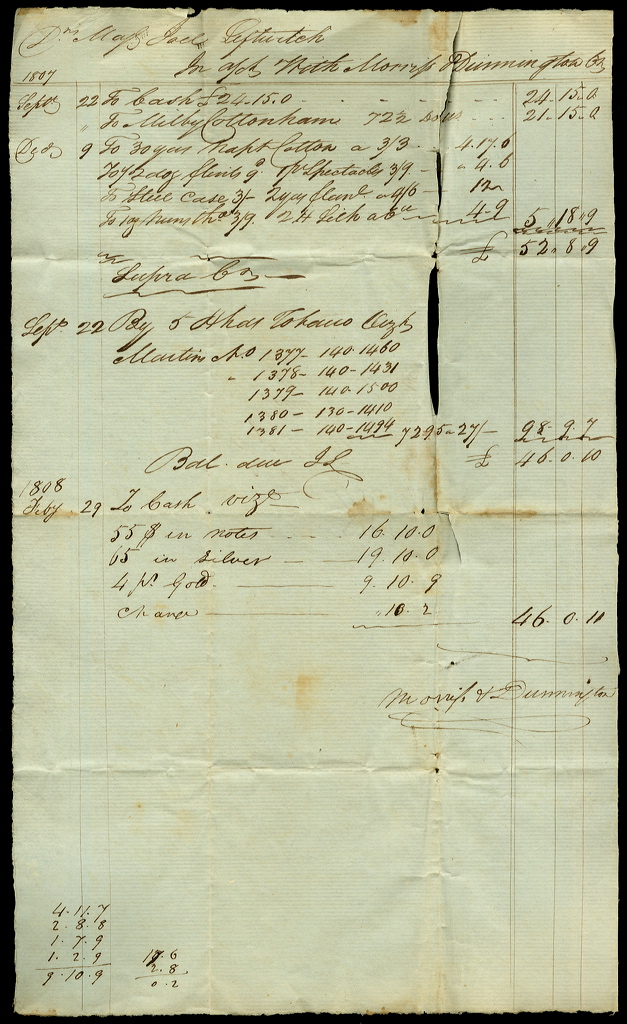 Dr Majr Joel Leftwitch
In a/ct With Morriss & Dunnington Cr
1807
Septr 22 To Cash £24.15.0 24-15-0
" To Milby Cottonham 72½ 21-15-0
Decr 9 To 30 yds Cotton a 3/3 4.17.6
To 2 doz flints 9d 1 pr Spectacles 3/9 - " 4.6
To Steel Case 3/- 2 yds flanl a 6/- 12
3/9. 2 H Silk a 4.9 5 " 18 " 9
£ 52 " 8 " 9
Supra Cr
Sepr. 22 By 5 Hhds Tobacco
Martins No 1377 - 140-1460
" 1378 - 140-1431
1379 - 140-1500
1380 - 130-1410
1381 - 140-1494 7295 a 27/- 98-9.7
Bal. due JL £ 46.0.10
1808
Feby 29 To Cash vizt
55 $ in notes 16.10.0
65 in Silver 19.10.0
4 ps. Gold 9.10.9
Change " 10.2 46.0.11
Morriss & Dunnington
4.11.7
2.8.8
1.7.9
1.2.9
9.10.9
2.8
0.2